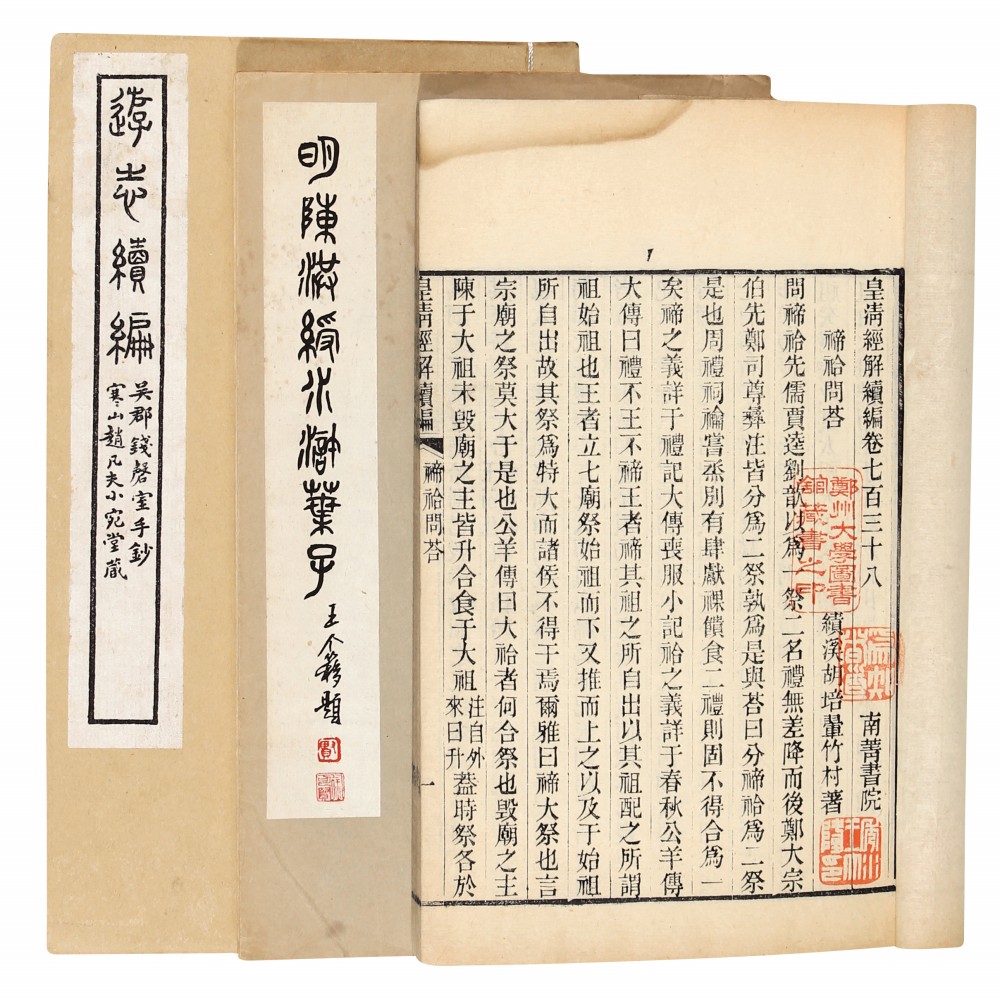 遊志續編
吳郡錢磬室手鈔
寒山趙凡夫小宛堂藏
明陳洪綬水滸葉子
王个簃題
皇清經解續編卷七百三十八 南菁書院
禘祫問荅 績溪胡培翬竹村著
問禘祫先儒賈逵劉歆以爲一祭二名禮無差降而後鄭大宗
伯先鄭司尊彝注皆分爲二祭孰爲是與荅曰分禘祫爲二祭
是也周禮祠禴嘗烝別有肆獻祼饋食二禮則固不得合爲一
矣禘之義詳于禮記大傳喪服小記祫之義詳于春秋公羊傳
大傳曰禮不王不禘王者禘其祖之所自出以其祖配之所謂
祖始祖也王者立七廟祭始祖而下又推而上之以及于始祖
所自出故其祭爲特大而諸侯不得干焉爾雅曰禘大祭也言
宗廟之祭莫大于是也公羊傳曰大祫者何合祭也毀廟之主
陳于大祖未毀廟之主皆升合食于大祖注自外來曰升葢時祭各於
皇清經解續編 禘祫問荅 一
鄭州大學圖書
館藏書之印